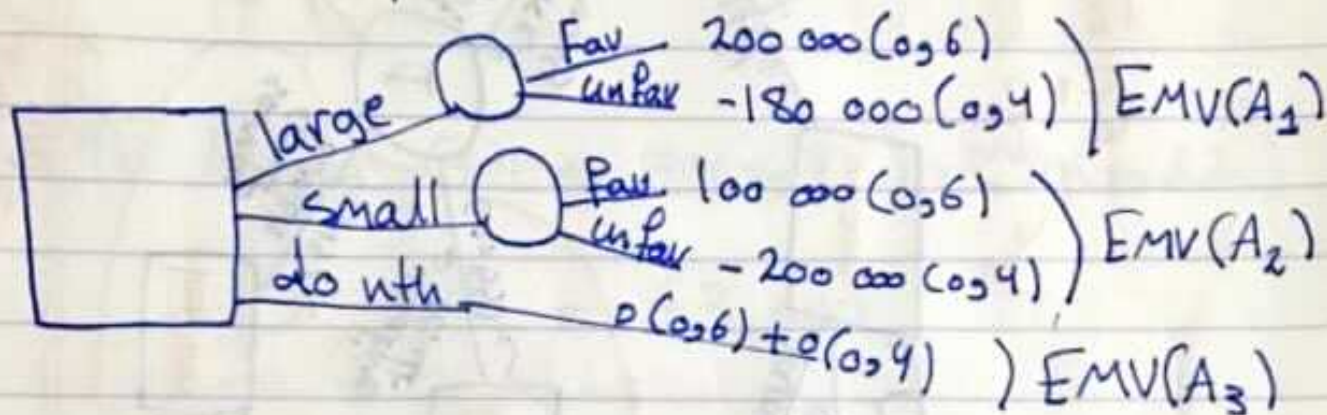 Fav 200 000 (0,6)
large unfav -180 000 (0,4) ) EMV(A1)
small Fav 100 000 (0,6)
unfav -200 000 (0,4) ) EMV(A2)
do nth 0(0,6) + 0(0,4) ) EMV(A3)